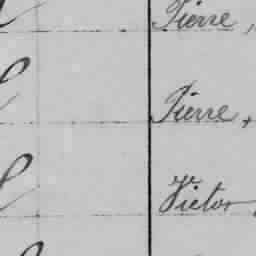 Pierre,
Pierre,
Victor,